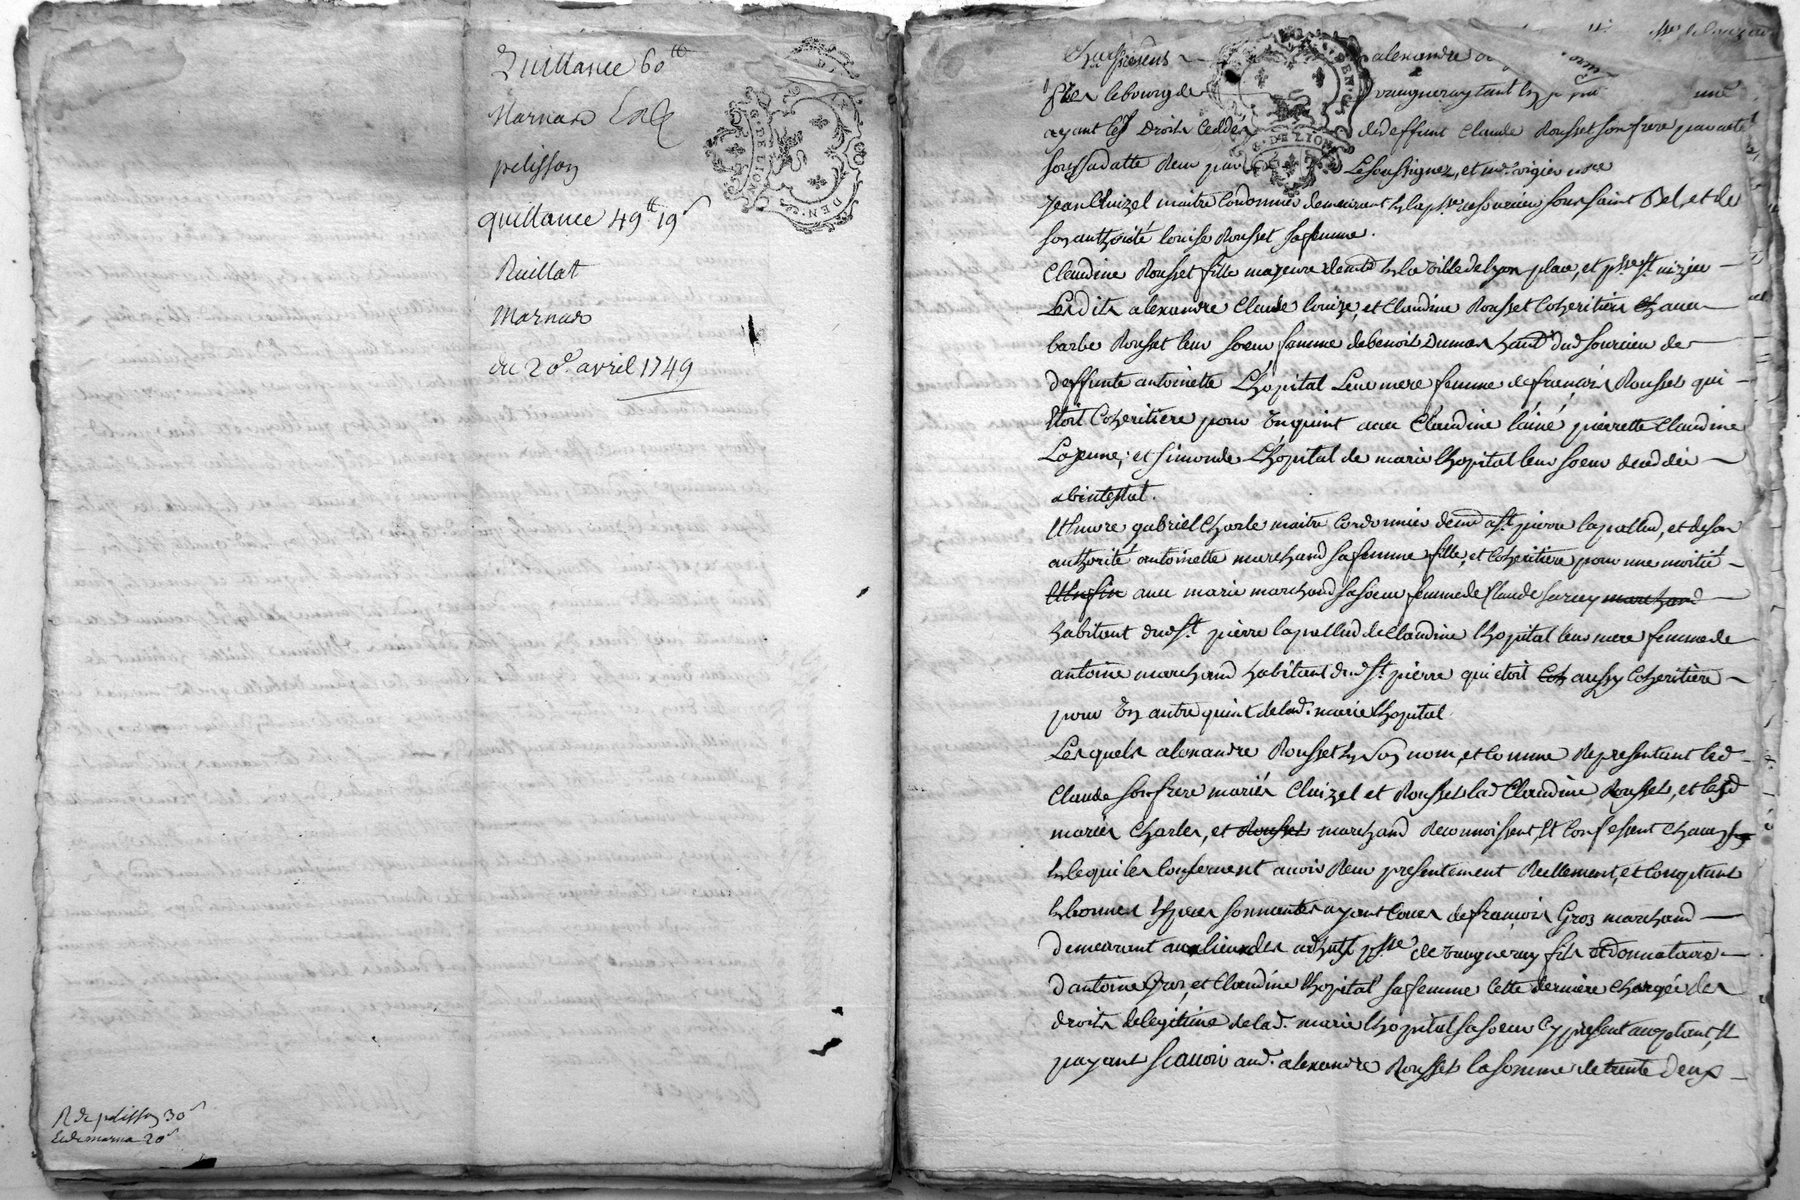 Quittance 60tt
Marnas
pelisson
quittance 49tt 19s
Ruillat
Marnas
du 20e. avril 1749
R de pelisson 30s
20s
GEN. DE LION
furent presents alexandre
le bourg de vaugneray tant
ayant les droits ceddes dedeffunt Claude Rousset son frere par acte
soussadatte Receu par Le soussignez, et
Jean Cluizel maitre Cordonnier demeurant sous saint Bel, et de
son authorité louise Rousset sa femme.
Claudine Rousset fille majeure demt en la ville de lyon place, et psse st. nizier
Lesdits alexandre Claude louize, et Claudine Rousset Coheritiers avec
barbe Rousset leur soeur femme de benoit Dumas dud sourcieu de
deffunte antoinette L'hopital Leur mere femme de francois Rousset qui
Etoit Coheritiere pour En quint avec Claudine l'ainé pierrette Claudine
La jeune, et simonde L'hopital de marie lhopital leur soeur deceddée
abintestat.
Encore gabriel Charle maitre Cordonnier demt a st. pierre lapallud, et de son
authorité antoinette marchand sa femme fille, et Coheritiere pour une moitié
avec marie marchand sa soeur femme de Claude surcey marchand
habitant dud st. pierre lapallud de Claudine lhopital leur mere femme de
antoine marchand habitant dud st. pierre qui etoit Coh aussy Coheritiere
pour En autre quint de lad. marie lhopital.
Les quels alexandre Rousset En son nom, et Comme Representant led
Claude son frere mariés Cluizel et Rousset lad Claudine Rousset, et lesd
mariés Charles, et Rousset marchand Reconnoissent, Et Confessent chacun
En ce qui les Concernent avoir Receu presentement Reellement, et Comptant
En bonnes Especes sonnantes ayant Cours de francois Gros marchand
demeurant au lieu des psse de vaugneray fils Et donnataire
d'antoine Gros, et Claudine lhopital sa femme Cette derniere Chargée des
droits de legitime de lad. marie lhopital sa soeur Cy present acceptant, Et
payant scavoir aud. alexandre Rousset la somme de trente deux